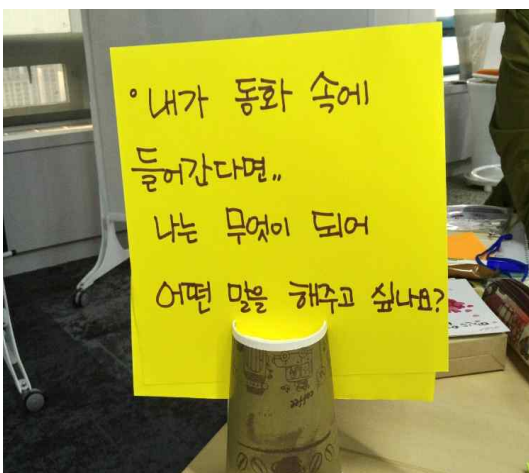 ° 내가 동화 속에
들어간다면,,
나는 무엇이 되어
어떤 말을 해주고 싶나요?